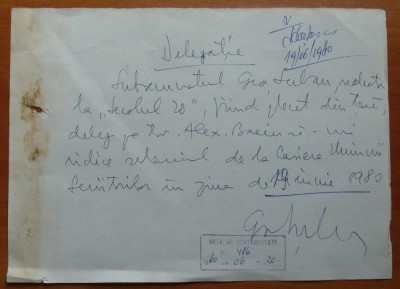 V
19/06/1980
Delegație
Subsemnatul Geo Șerban, redactor
la „Secolul 20”, fiind plecat din țară,
deleg pe tov. Alex. să-mi
ridice salariul de la Casieria Uniunii
Scriitorilor în ziua de 19 iunie 1980.
VIZA DE CONTABILITATE
486
20 06